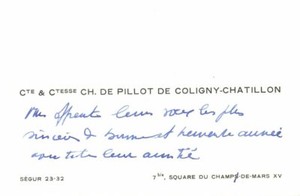 CTE & CTESSE CH. DE PILLOT DE COLIGNY-CHATILLON
Vous offrent leurs voeux les plus
sincères de bonne et heureuse année
avec toute leur amitié
SÉGUR 23-32
7BIS, SQUARE DU CHAMP-DE-MARS XV